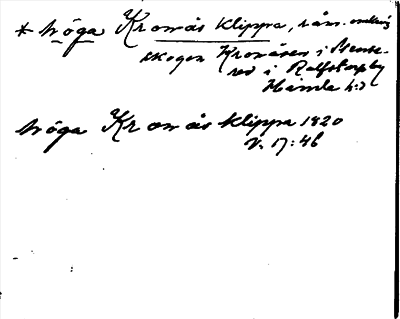 * höga Kronås klippa, råm. omkring
skogen Kronåsen i Stens-
red i Rolfstorp by
Himle h:d
höga Kronås klippa 1820
V. 17:46